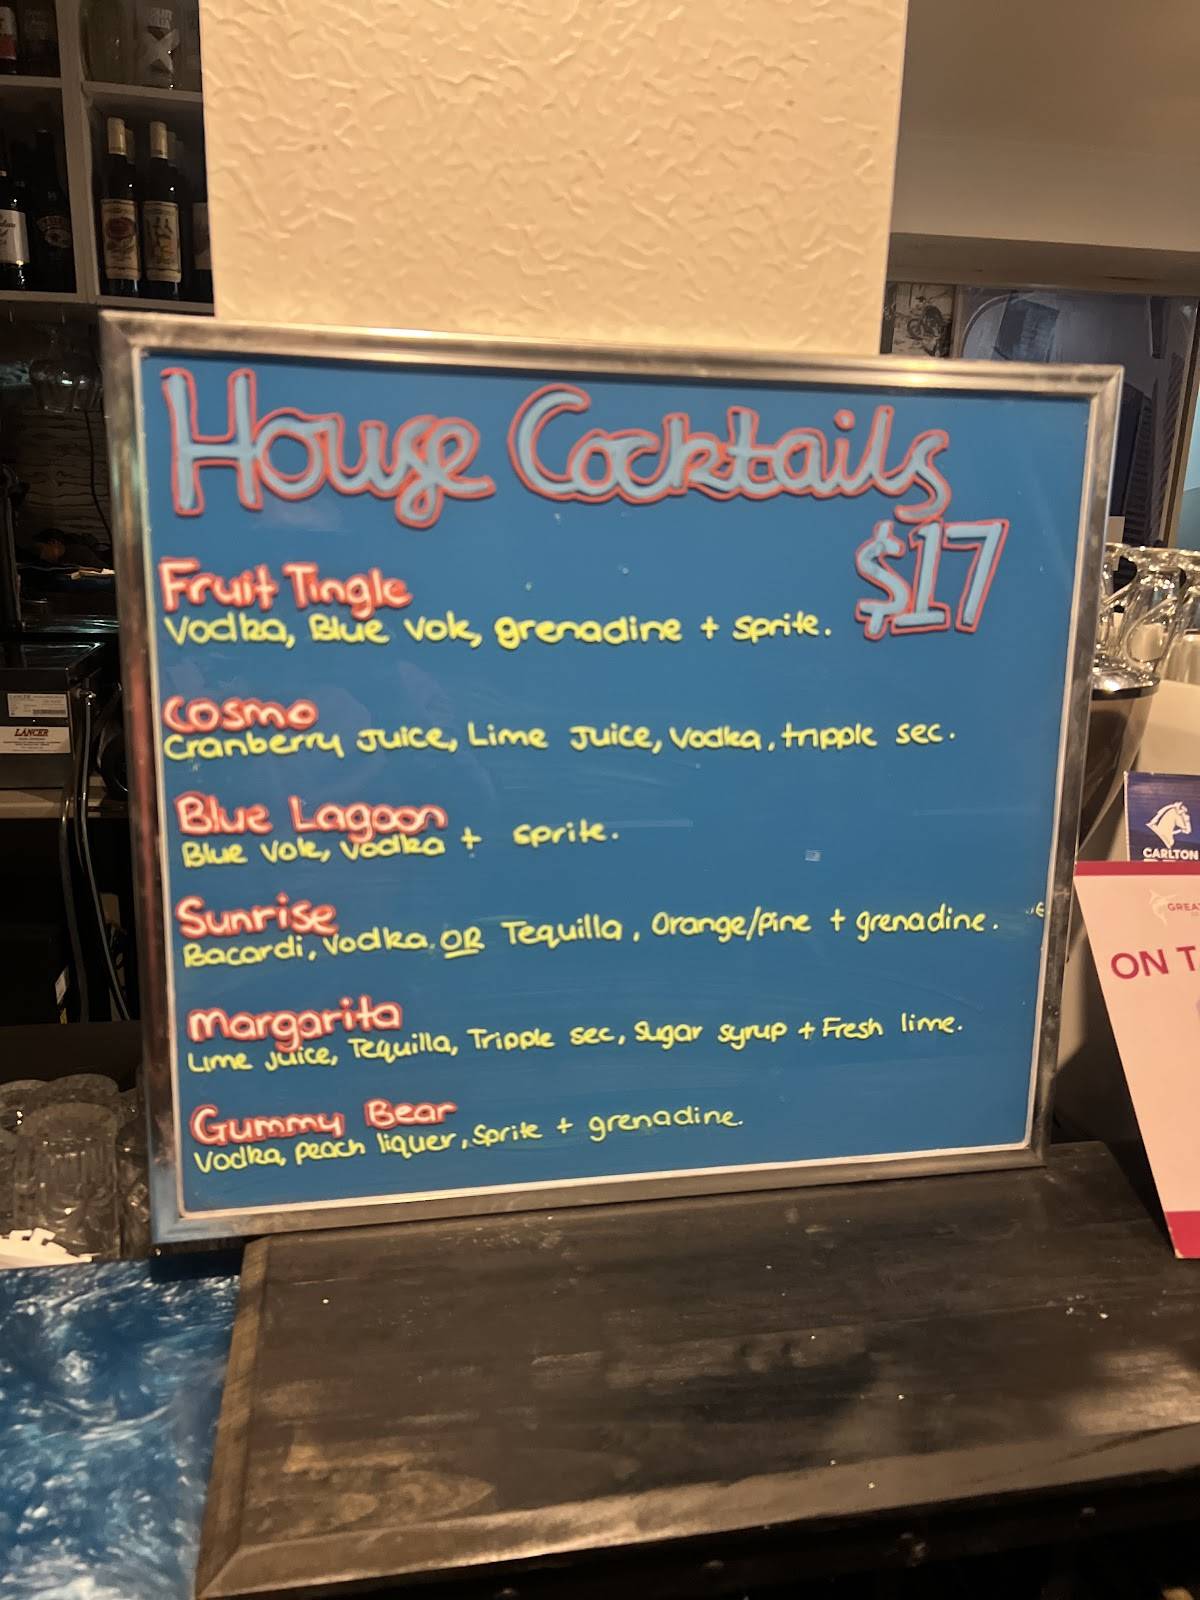 House Cocktails
$17
Fruit Tingle
Vodka, Blue Vok, grenadine + sprite.
Cosmo
Cranberry Juice, Lime Juice, Vodka, tripple sec.
Blue Lagoon
Blue Vok, Vodka + sprite.
Sunrise
Bacardi, Vodka OR Tequilla, Orange/Pine + grenadine.
Margarita
Lime juice, Tequilla, Tripple sec, Sugar syrup + Fresh lime.
Gummy Bear
Vodka, peach liquer, Sprite + grenadine.
LANCER
CARLTON
ON T